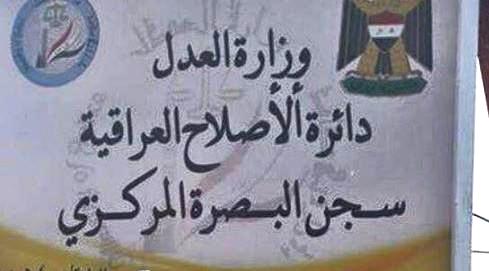 وزارة العدل
دائرة ألأصلاح العراقية
سجن البصرة المركزي